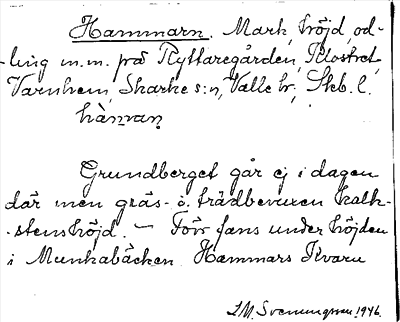 Hammarn. Mark, höjd, od-
-ling m.m. på Ryttaregården, Klostret,
Varnhem, Skarke s:n, Valle hr; Skb. l.
hàmaṛ
Grundberget går ej i dagen
där men gräs- o. trädbevuxen kalk-
-stenshöjd. - Förr fans under höjden
i Munkabäcken Hammars Kvarn
I M Svenungsson 1946.